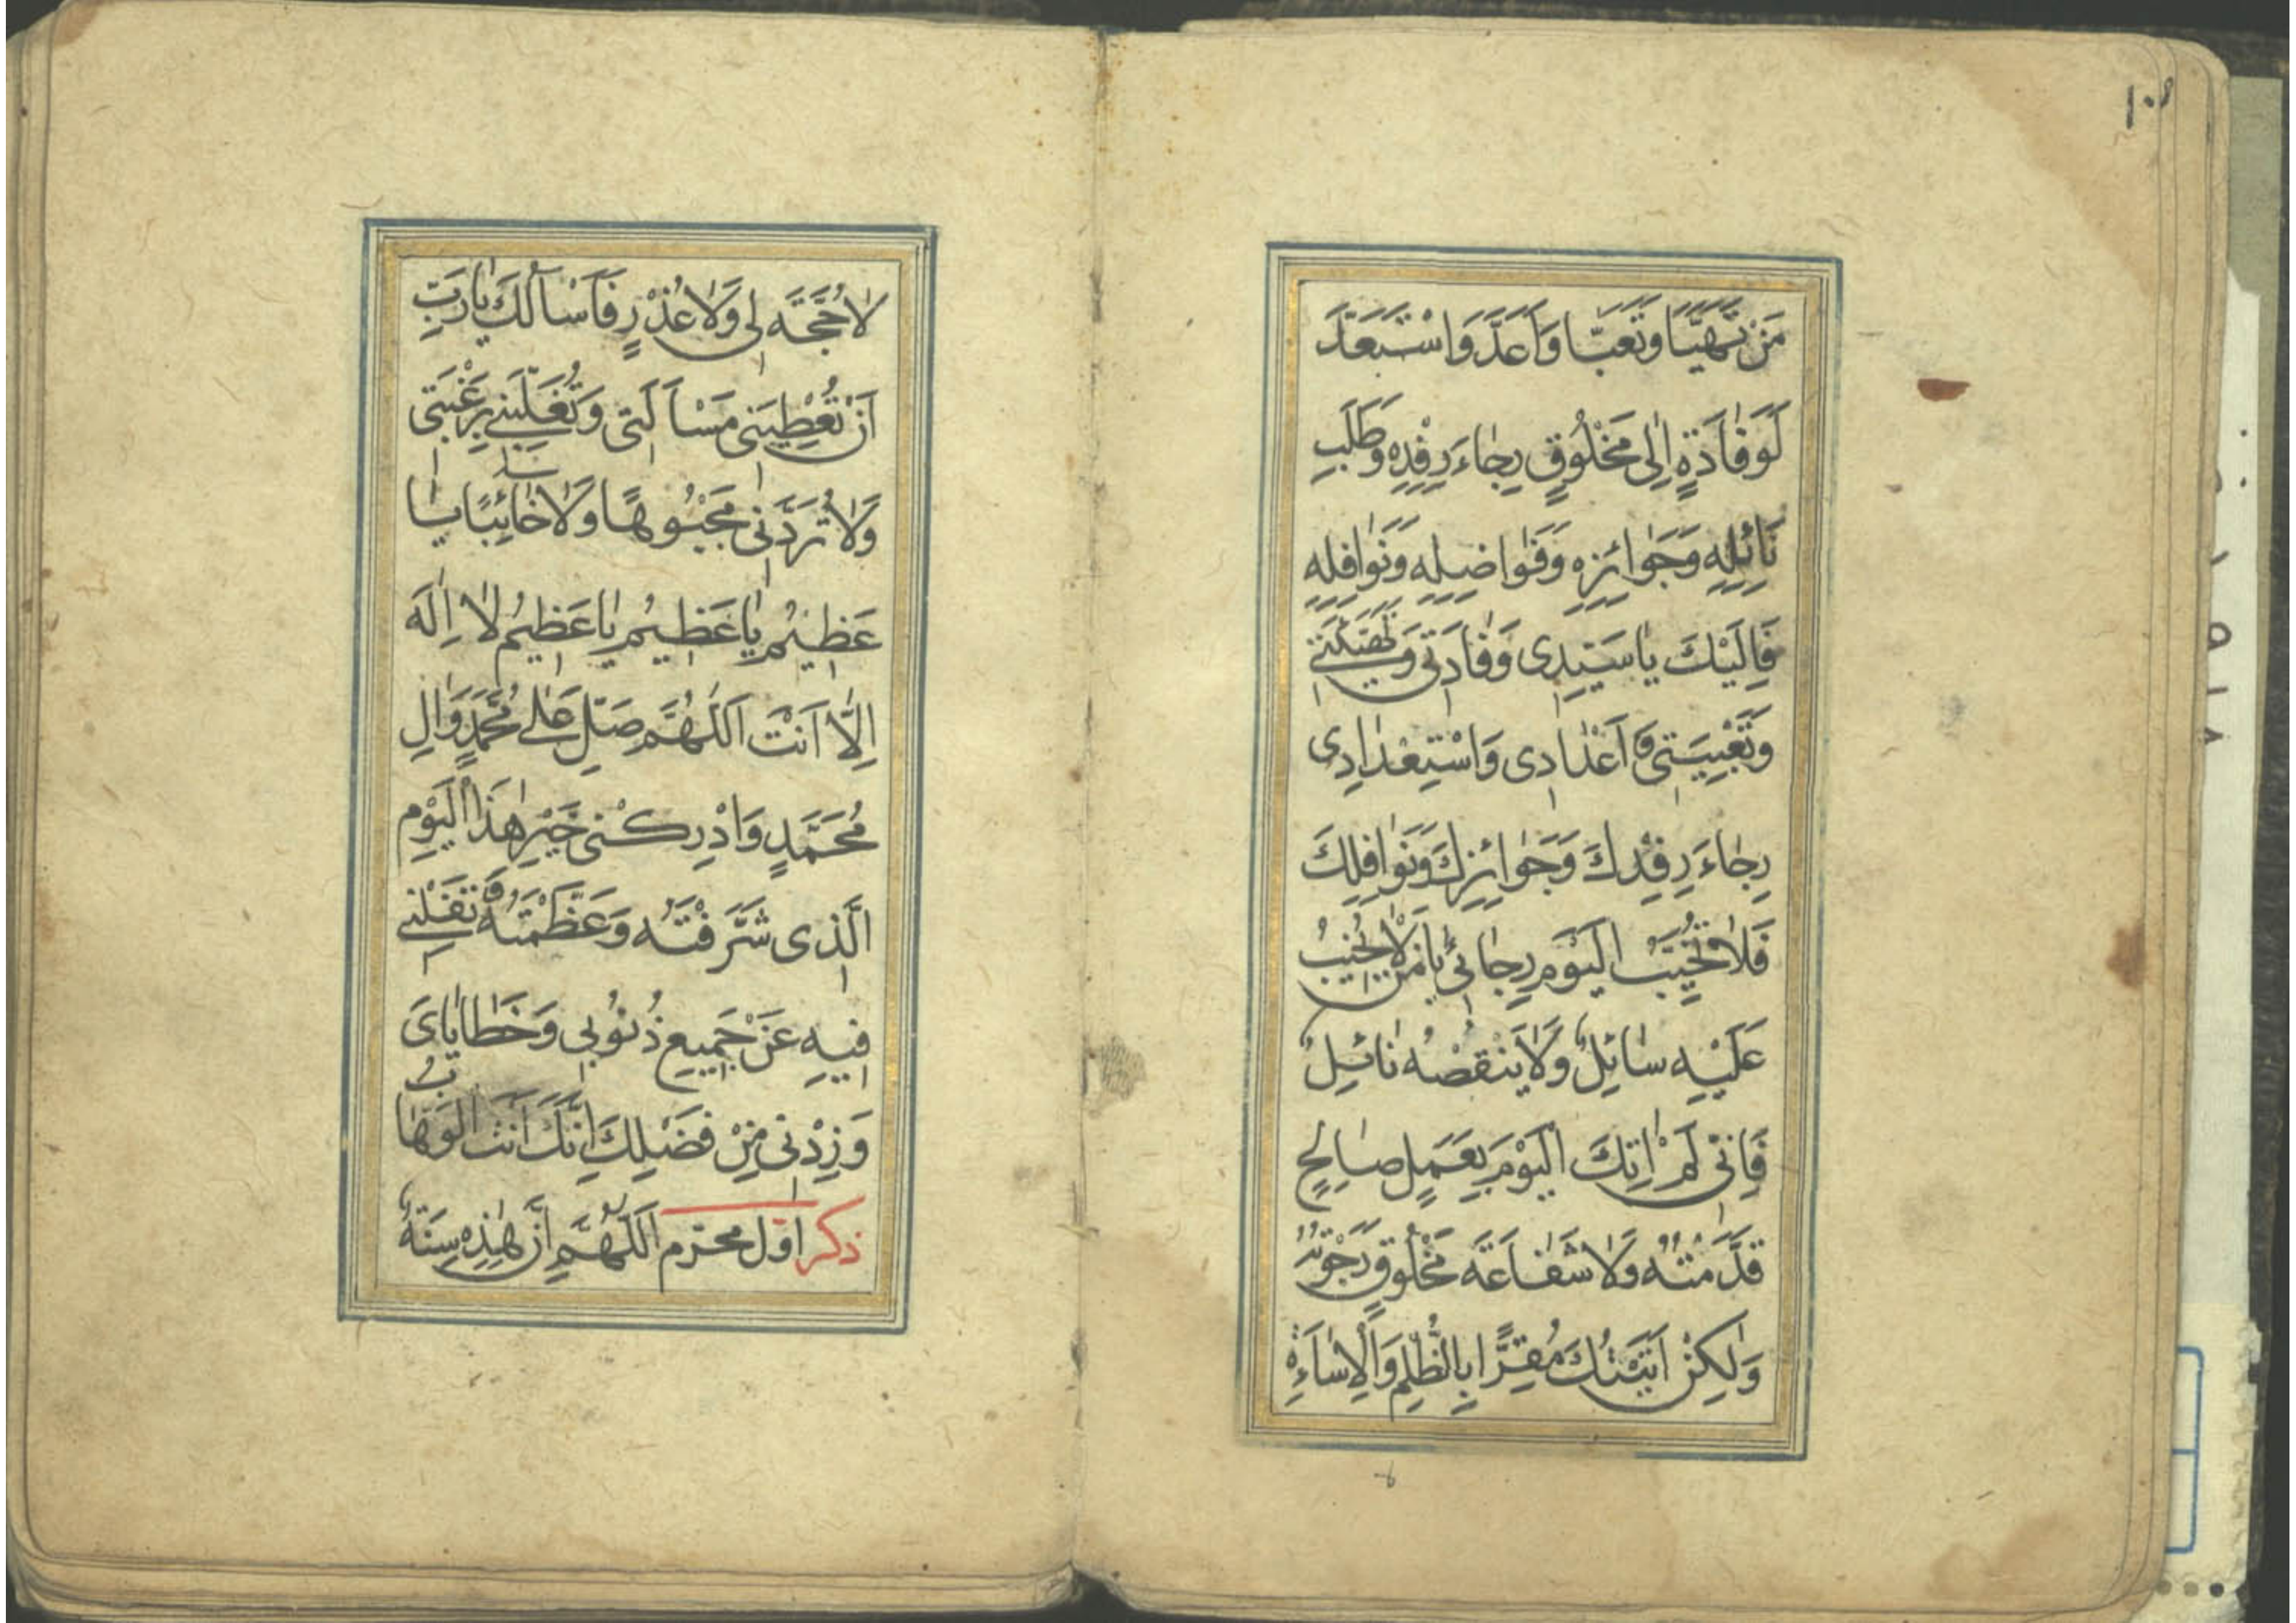 ١٠٨
مَنْ تَهَيَّأَ وَتَعَبَّا وَاَعَدَّ وَاسْتَعَدَّ
لِوَفَادَةٍ اِلٰى مَخْلُوقٍ رِجٰاءَ رِفْدِهِ وَطَلَبِ
نٰائِلِهِ وَجَوٰائِزِهِ وَفَوٰاضِلِهِ وَنَوٰافِلِهِ
فَاِلَيْكَ يٰا سَيِّدِى وَفٰادَتى وَتَهْيِئَتى
وَتَعْبِيَتى وَاَعْدٰادى وَاسْتِعْدٰادِى
رِجٰاءَ رِفْدِكَ وَجَوٰائِزِكَ وَنَوٰافِلِكَ
فَلٰا تُخَيِّبْ الْيَوْمَ رِجٰائى يٰا مَنْ لٰا يُخَيِّبُ
عَلَيْهِ سٰائِلٌ وَلٰا يَنْقُصُهُ نٰائِلٌ
فَاِنّى لَمْ اٰتِكَ الْيَوْمَ بِعَمَلٍ صٰالِحٍ
قَدَّمْتُهُ وَلٰا شَفٰاعَةَ مَخْلُوقٍ رَجَوْتُهُ
وَلٰكِنْ اَتَيْتُكَ مُقِرًّا بِالظُّلْمِ وَالْاِسٰاءَةِ
لٰا حُجَّةَ لى وَلٰا عُذْرٍ فَاَسْاَلُكَ يٰا رَبِّ
اَنْ تُعْطِيَنى مَسْاَلَتى وَتُقَلِّبَنى بِرَغْبَتى
وَلٰا تُرَدَّنى مَجْبُوهًا وَلٰا خٰائِبًا يٰا
عَظيمُ يٰا عَظيمُ يٰا عَظيمُ لٰا اِلٰهَ
اِلّٰا اَنْتَ اَللّٰهُمَّ صَلِّ عَلٰى مُحَمَّدٍ وَاٰلِ
مُحَمَّدٍ وَادْرِكْنى خَيْرِ هٰذَا الْيَوْمِ
الَّذى شَرَّفْتَهُ وَعَظَّمْتَهُ وَتَقَلْنى
فيهِ عَنْ جَميعِ ذُنُوبى وَخَطٰايٰاىَ
وَزِدْنى مِنْ فَضْلِكَ اِنَّكَ اَنْتَ الْوَهّٰابُ
ذكر اول محرم اَللّٰهُمَّ اِنَّ هٰذِهِ سَنَةٌ